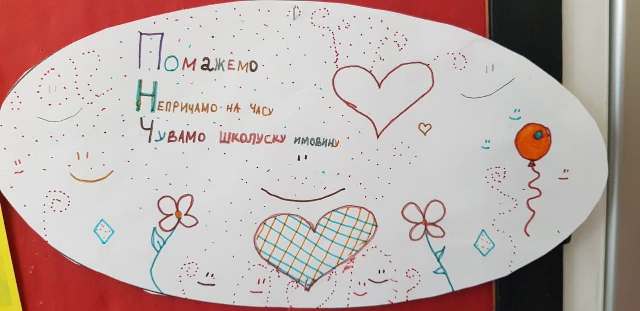 Помажемо
Непричамо на часу
Чувамо школуску имовину